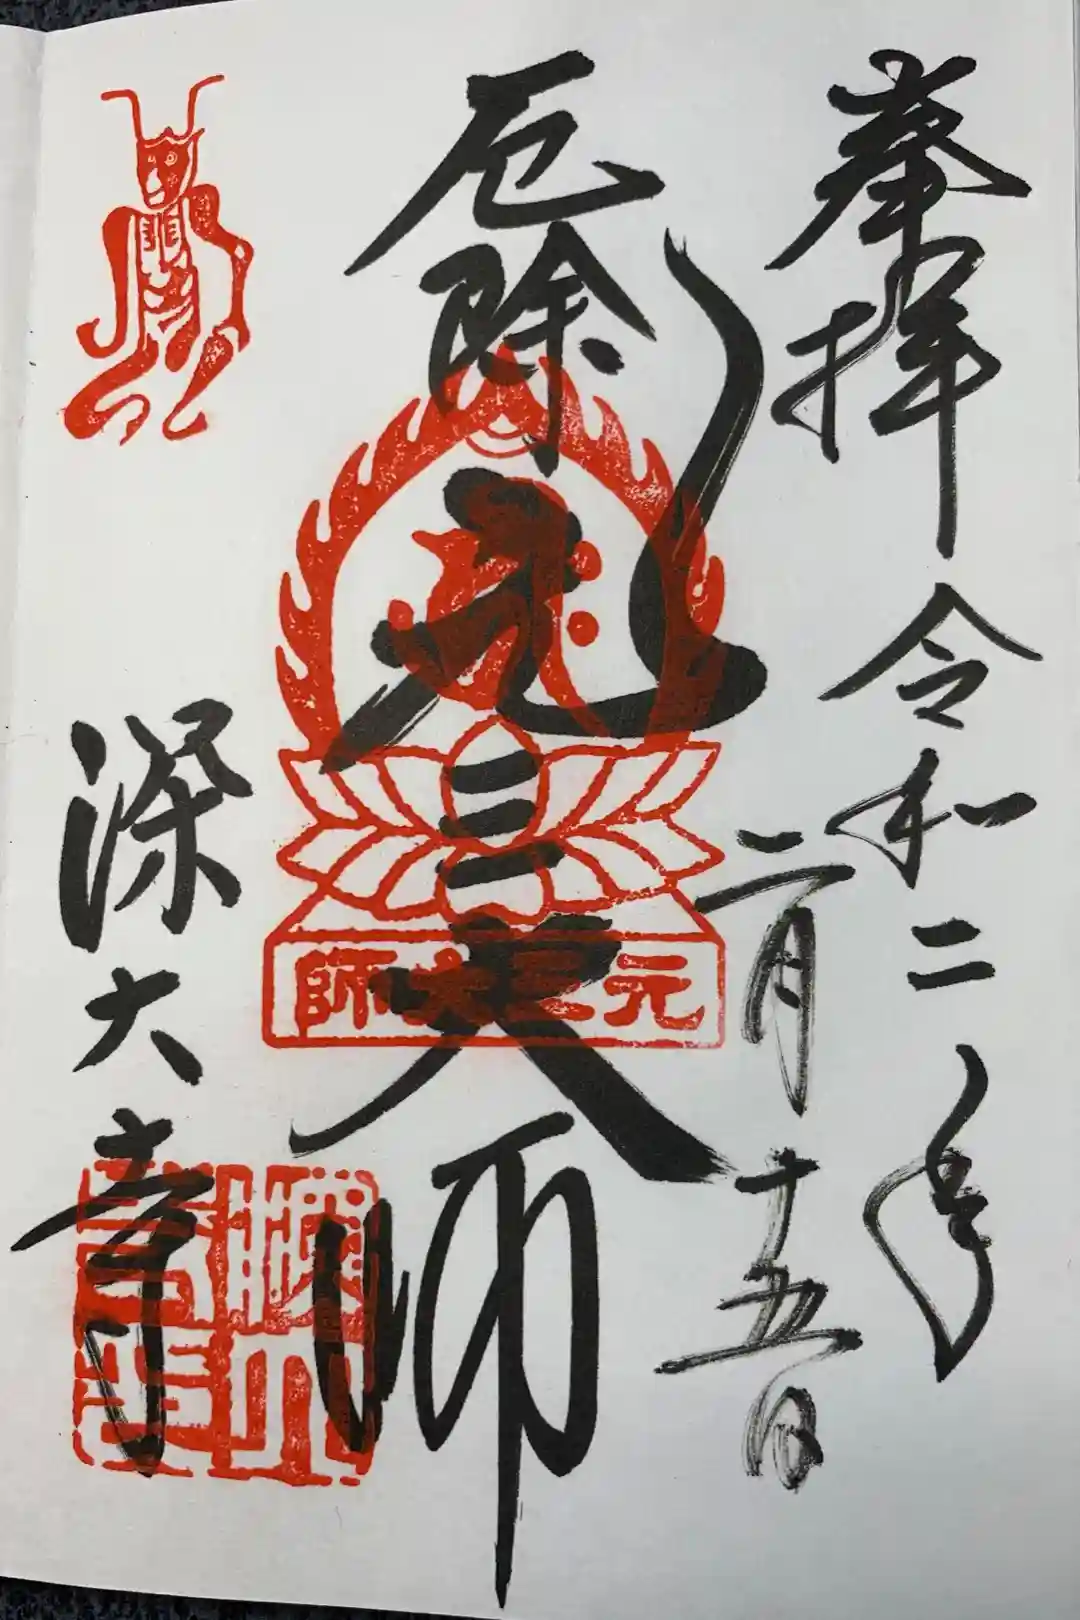 奉拝 令和二年
二月十五日
厄除元三大師
元三大師
深大寺